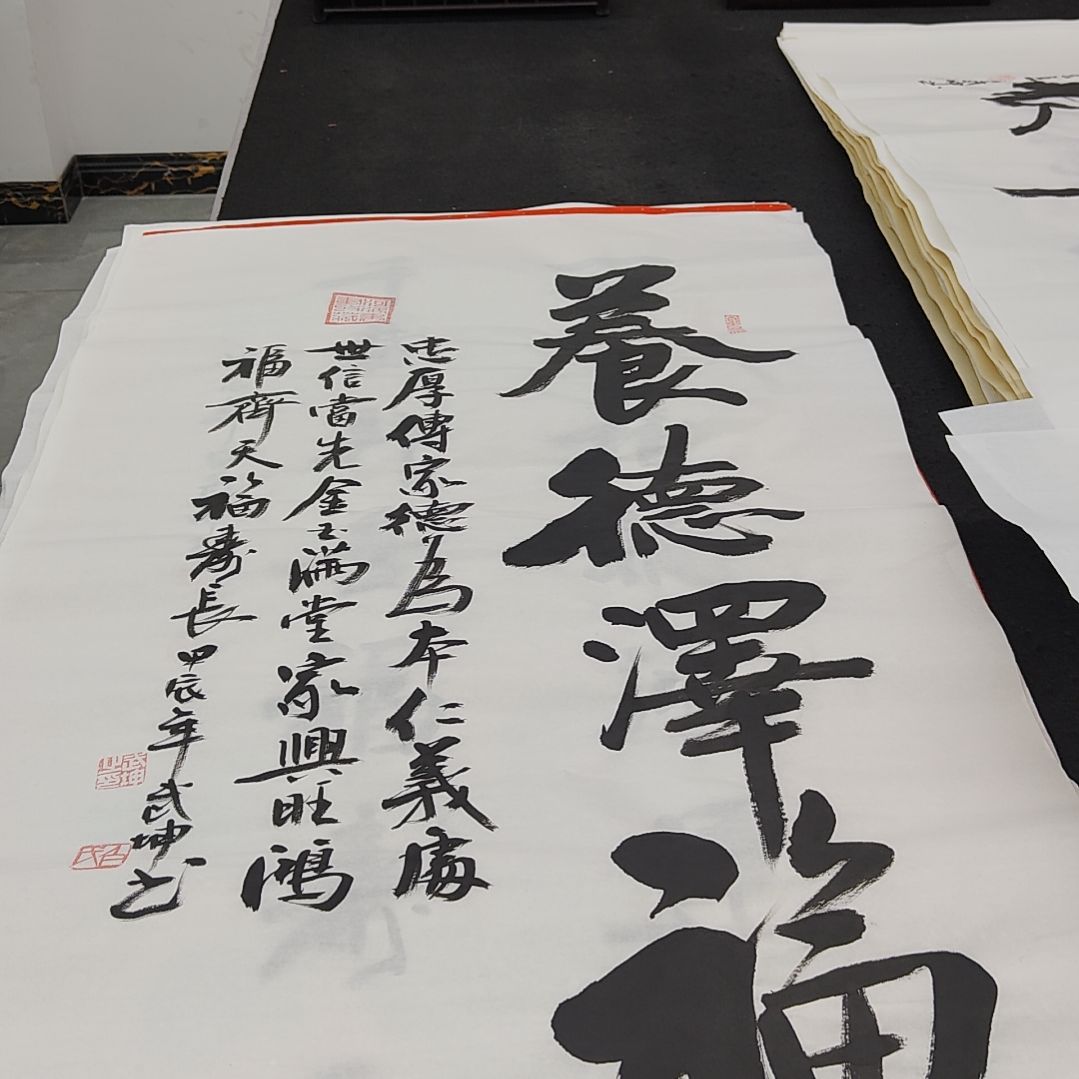 養德澤福
忠厚傳家德為本仁義處
世信當先金玉滿堂家興旺鴻
福齊天福壽長甲辰年武坤书